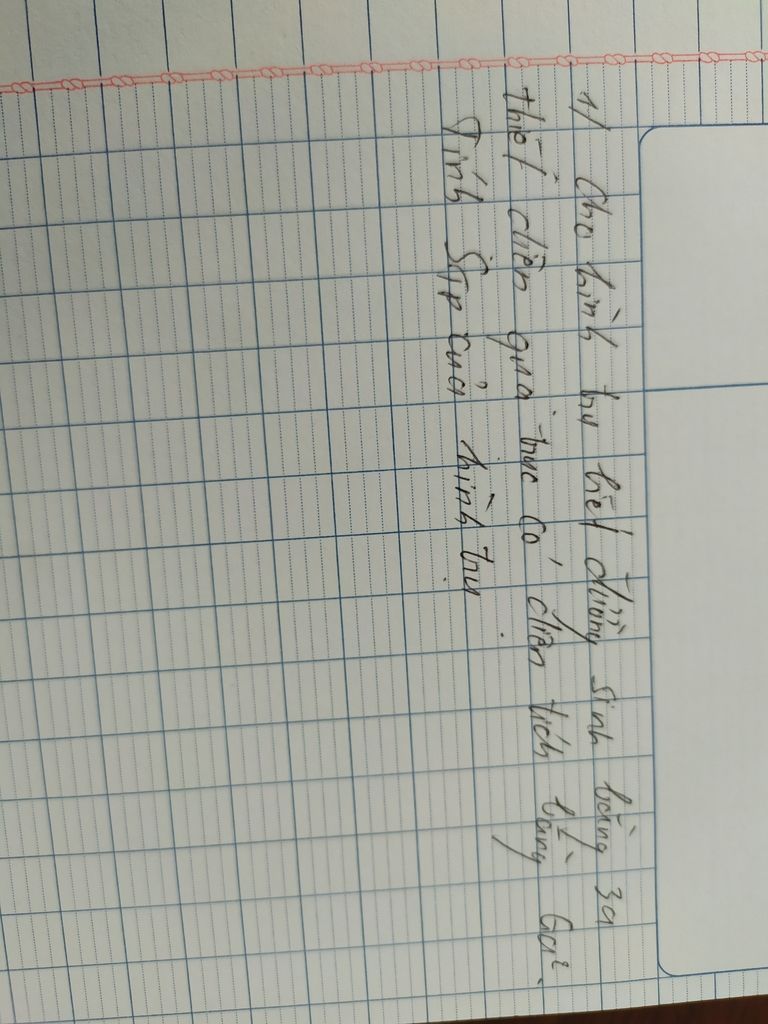 1/ Cho hình trụ biết đường sinh bằng 3a
thiết diện qua trục có diện tích bằng 6a².
Tính STP của hình trụ